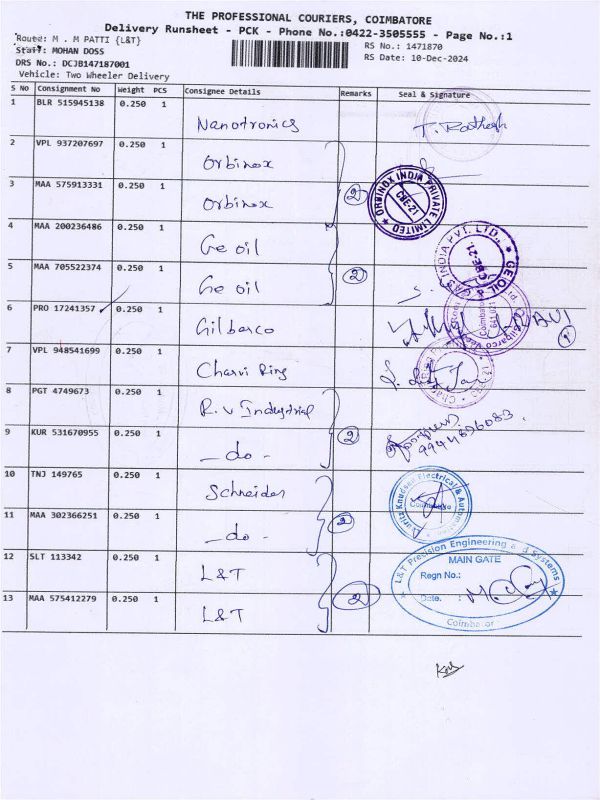 THE PROFESSIONAL COURIERS, COIMBATORE
Delivery Runsheet - PCK - Phone No.:0422-3505555 - Page No.:1
Route: M . M PATTI {L&T}
RS No.: 1471870
Staff: MOHAN DOSS
RS Date: 10-Dec-2024
DRS No.: DCJB147187001
Vehicle: Two Wheeler Delivery
S No Consignment No Weight PCS Consignee Details Remarks Seal & Signature
1 BLR 515945138 0.250 1 Nanotronics
2 VPL 937207697 0.250 1 Orbinox
3 MAA 575913331 0.250 1 Orbinox 2
ORBINOX INDIA PRIVATE LIMITED CBE-21
4 MAA 200236486 0.250 1 Ge oil
5 MAA 705522374 0.250 1 Ge oil 2
CBE-21.
6 PRO 17241357 0.250 1 Gilbarco 1
7 VPL 948541699 0.250 1 Charvi Ring
8 PGT 4749673 0.250 1 R.V Industrial
9 KUR 531670955 0.250 1 - do - 2
9944896083.
10 TNJ 149765 0.250 1 Schneider
11 MAA 302366251 0.250 1 - do - 2
12 SLT 113342 0.250 1 L&T
13 MAA 575412279 0.250 1 L&T 2
L&T Precision Engineering and Systems
MAIN GATE
Regn No.:
Date. :